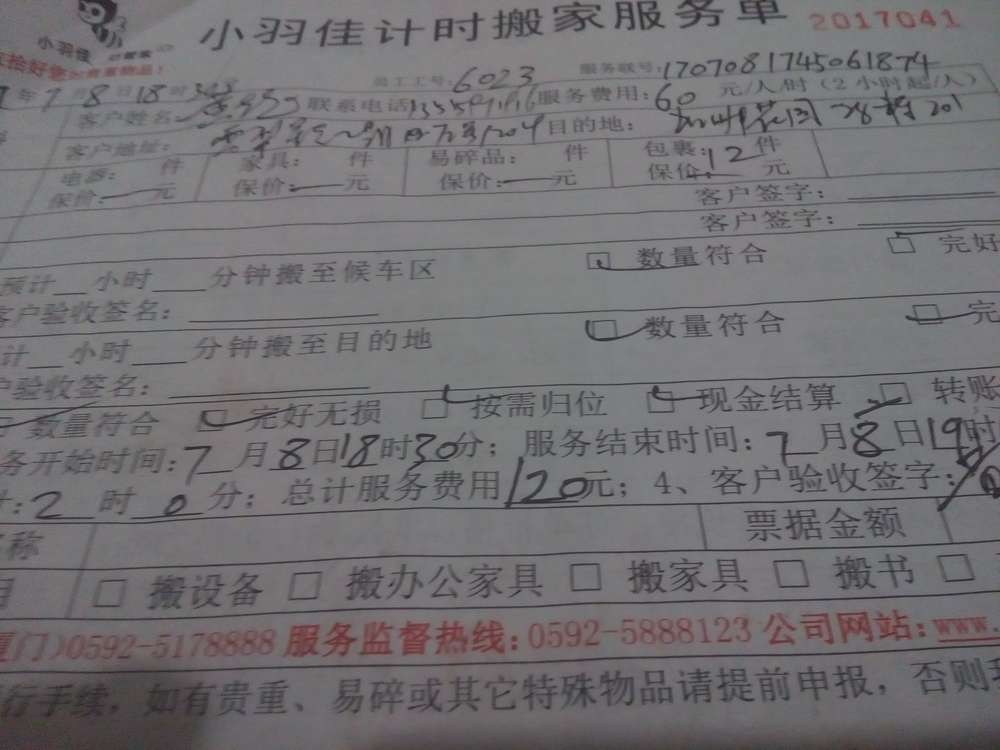 小羽佳计时搬家服务单 2017041
小羽佳
年7月8日18时 员工工号:6023 服务联号:1707081745061874
客户姓名: 联系电话 服务费用:60元/人/时(2小时起/人)
客户地址: 目的地: 花园 201
电器: 件 家具: 件 易碎品: 件 包裹:12件
保价:—元 保价:—元 保价:—元 保价: 元
客户签字:
客户签字:
预计 小时 分钟搬至候车区 □ 数量符合 □ 完好
客户验收签名:
计 小时 分钟搬至目的地 □ 数量符合 □ 完
户验收签名:
数量符合 □ 完好无损 □ 按需归位 □ 现金结算 □ 转账
务开始时间:7月8日18时30分;服务结束时间:7月8日19时
计:2时0分;总计服务费用120元;4、客户验收签字:
名称 票据金额
目 □ 搬设备 □ 搬办公家具 □ 搬家具 □ 搬书 □
厦门)0592-5178888 服务监督热线:0592-5888123 公司网站:www.
行手续,如有贵重、易碎或其它特殊物品请提前申报,否则